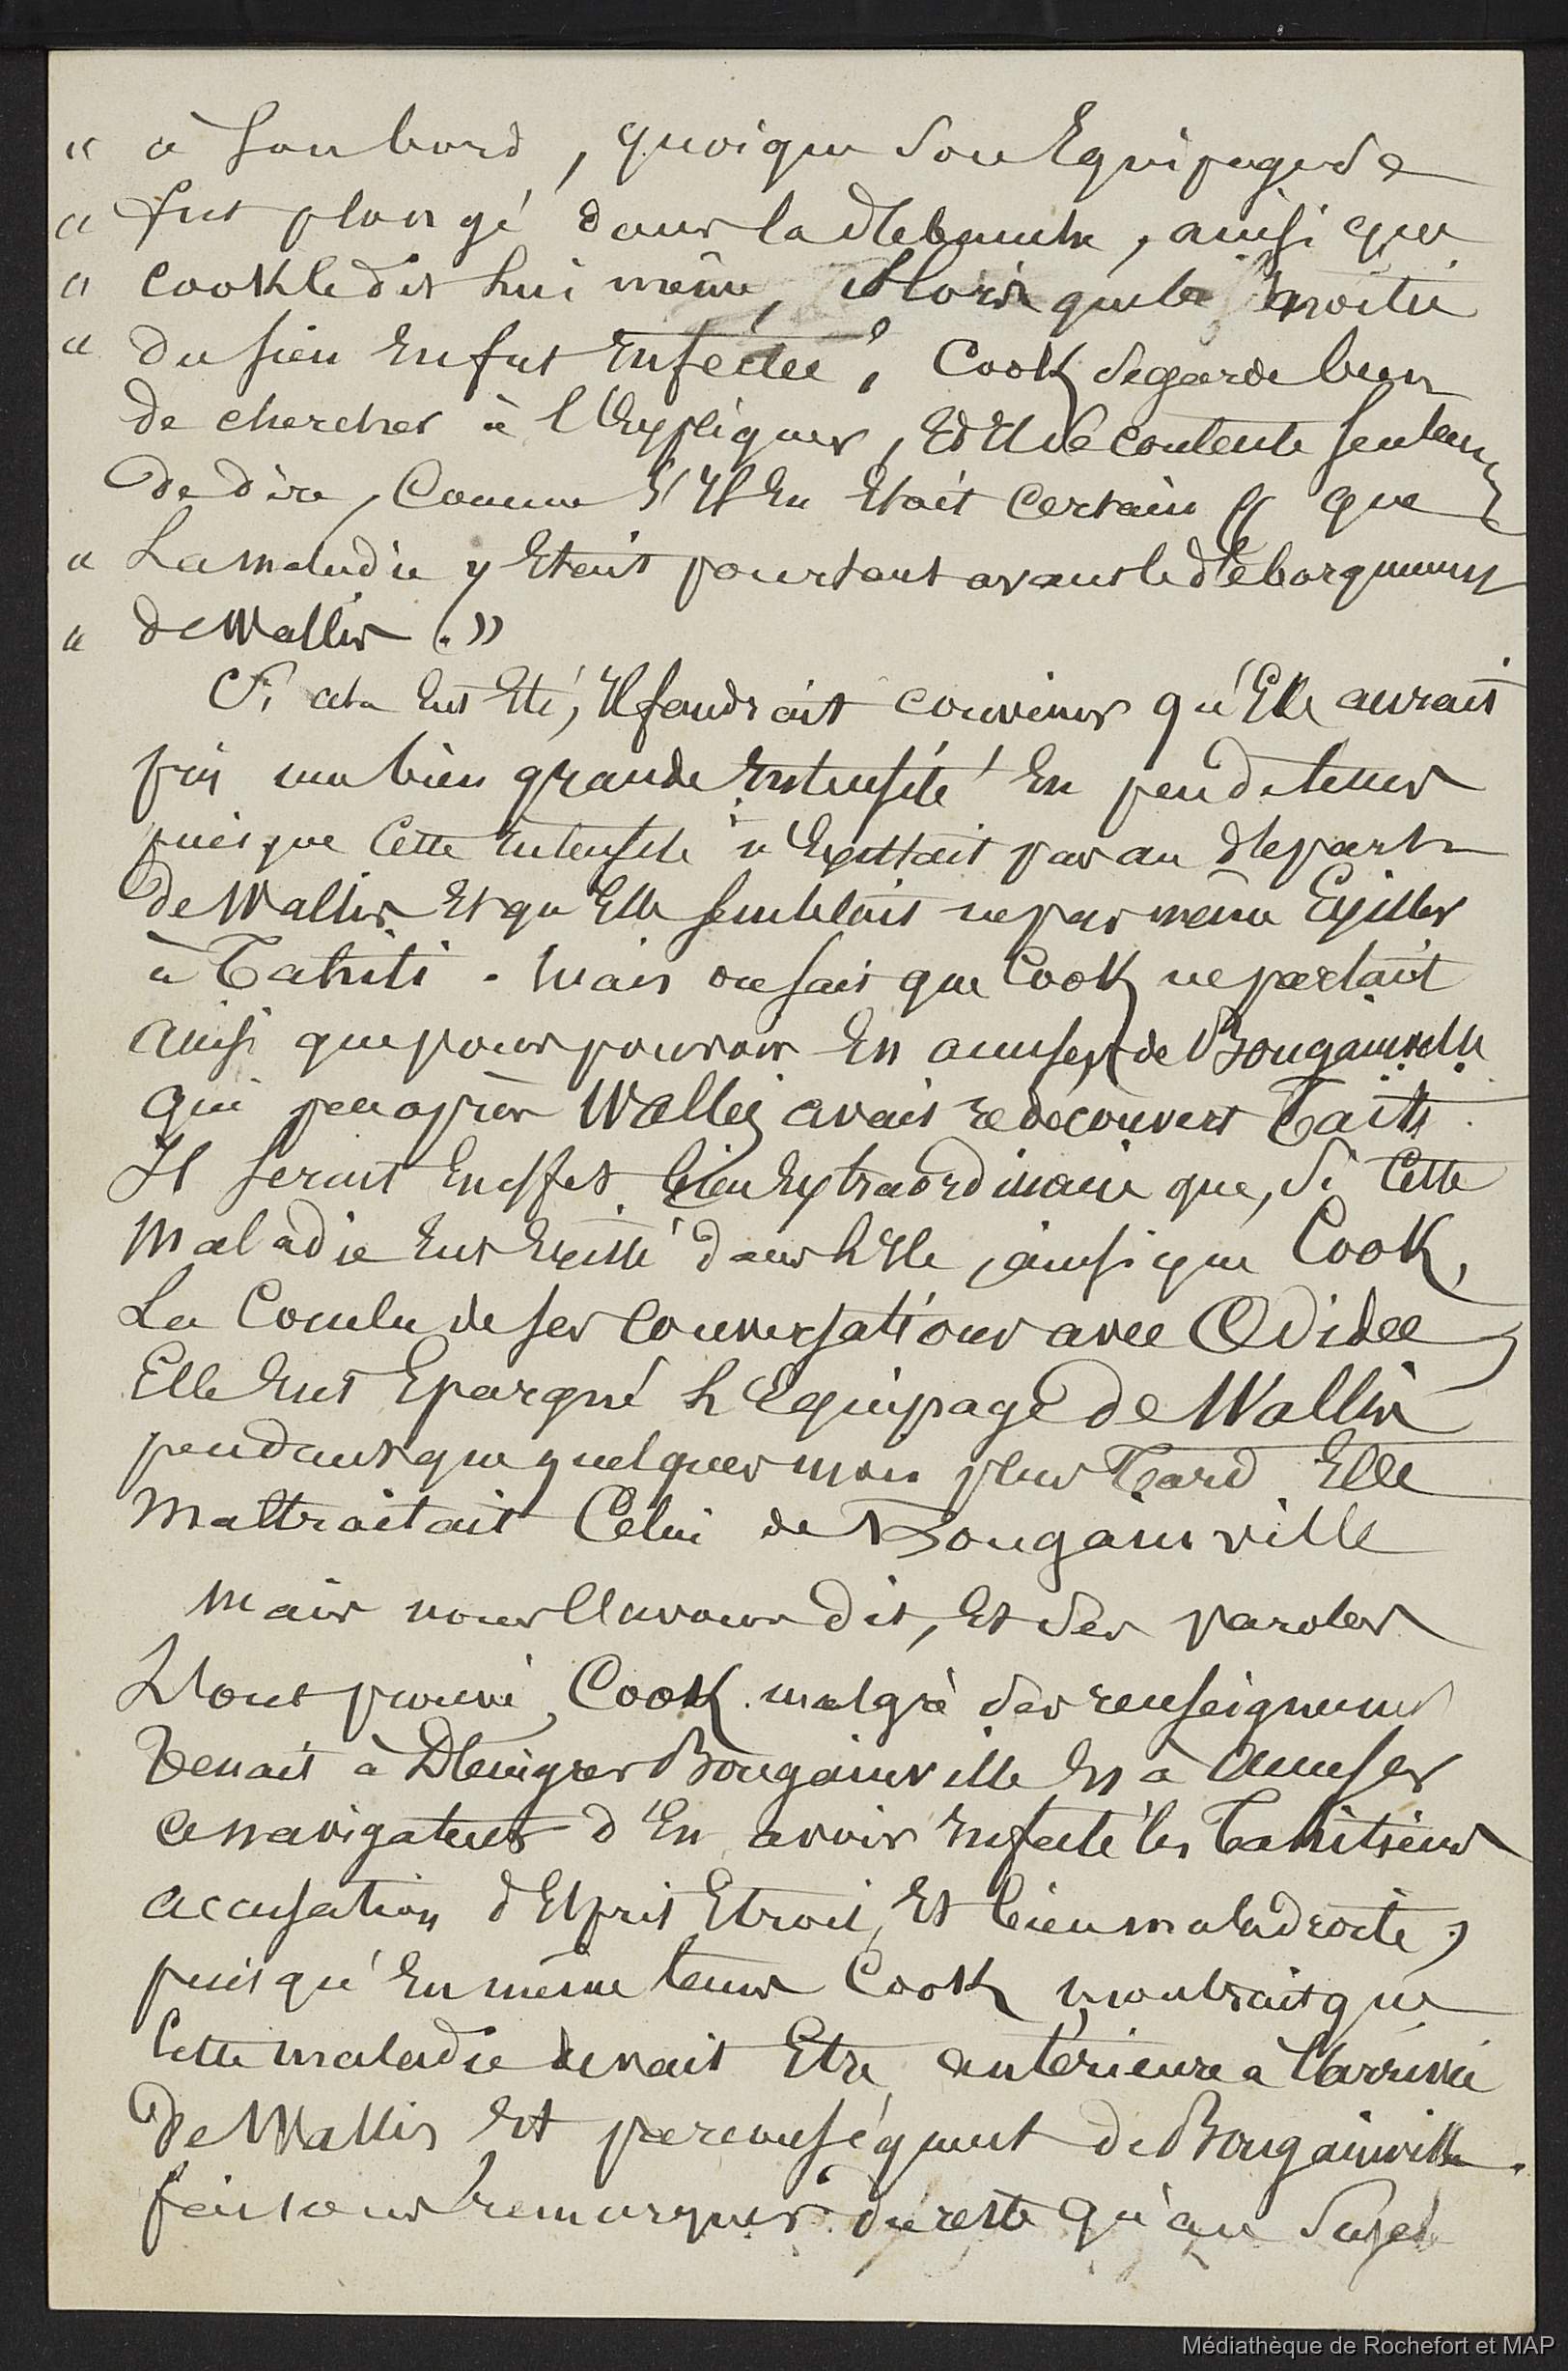 " à son bord, quoique son Equipage se
" fut plongé dans la debauche, ainsi que
" Cook le dit lui même, Alors que la moitié
" du sien En fut Infectée", Cook se garde bien
de chercher à l'Expliquer, Et Il se contente seulem
de dire, Comme S'Il En Etait Certain " que
" La maladie y Etait pourtant avant le débarquement
" de Wallis."
Si cela Eut Eté, Il faudrait convenir qu'Elle aurait
pris une bien grande Intensité En peu de tems
puisque Cette Intensité n'Existait pas au départ
de Wallis Et qu'Elle semblait ne pas même Exister
à Tahiti. Mais on sait que Cook ne parlait
ainsi que pour pouvoir En accuser de Bougainville
qui peu après Wallis avait redécouvert Taiti.
Il serait En effet bien Extraordinaire que, si Cette
Maladie Eut Existé dans l'Ile, ainsi que Cook,
La Conclu de ses Conversations avec Œdidee,
Elle Eut Epargné L'Equipage de Wallis
pendant que quelques mois plus Tard Elle
Maltraitait Celui de Bougainville
Mais nous l'Avons dit, Et ses paroles
L'ont prouvé, Cook malgré ses renseignemens
Tenait à Dénigrer Bougainville Et à Accuser
ce navigateur d'En avoir Infecté les Tahitiens
accusation d'Esprit Etroit, Et bien maladroite,
puisqu'En même tems Cook montrait que
Cette maladie devait Etre antérieure à l'arrivée
de Wallis Et par conséquent de Bougainville.
faisons remarquer du reste qu'au Sujet
Médiathèque de Rochefort et MAP